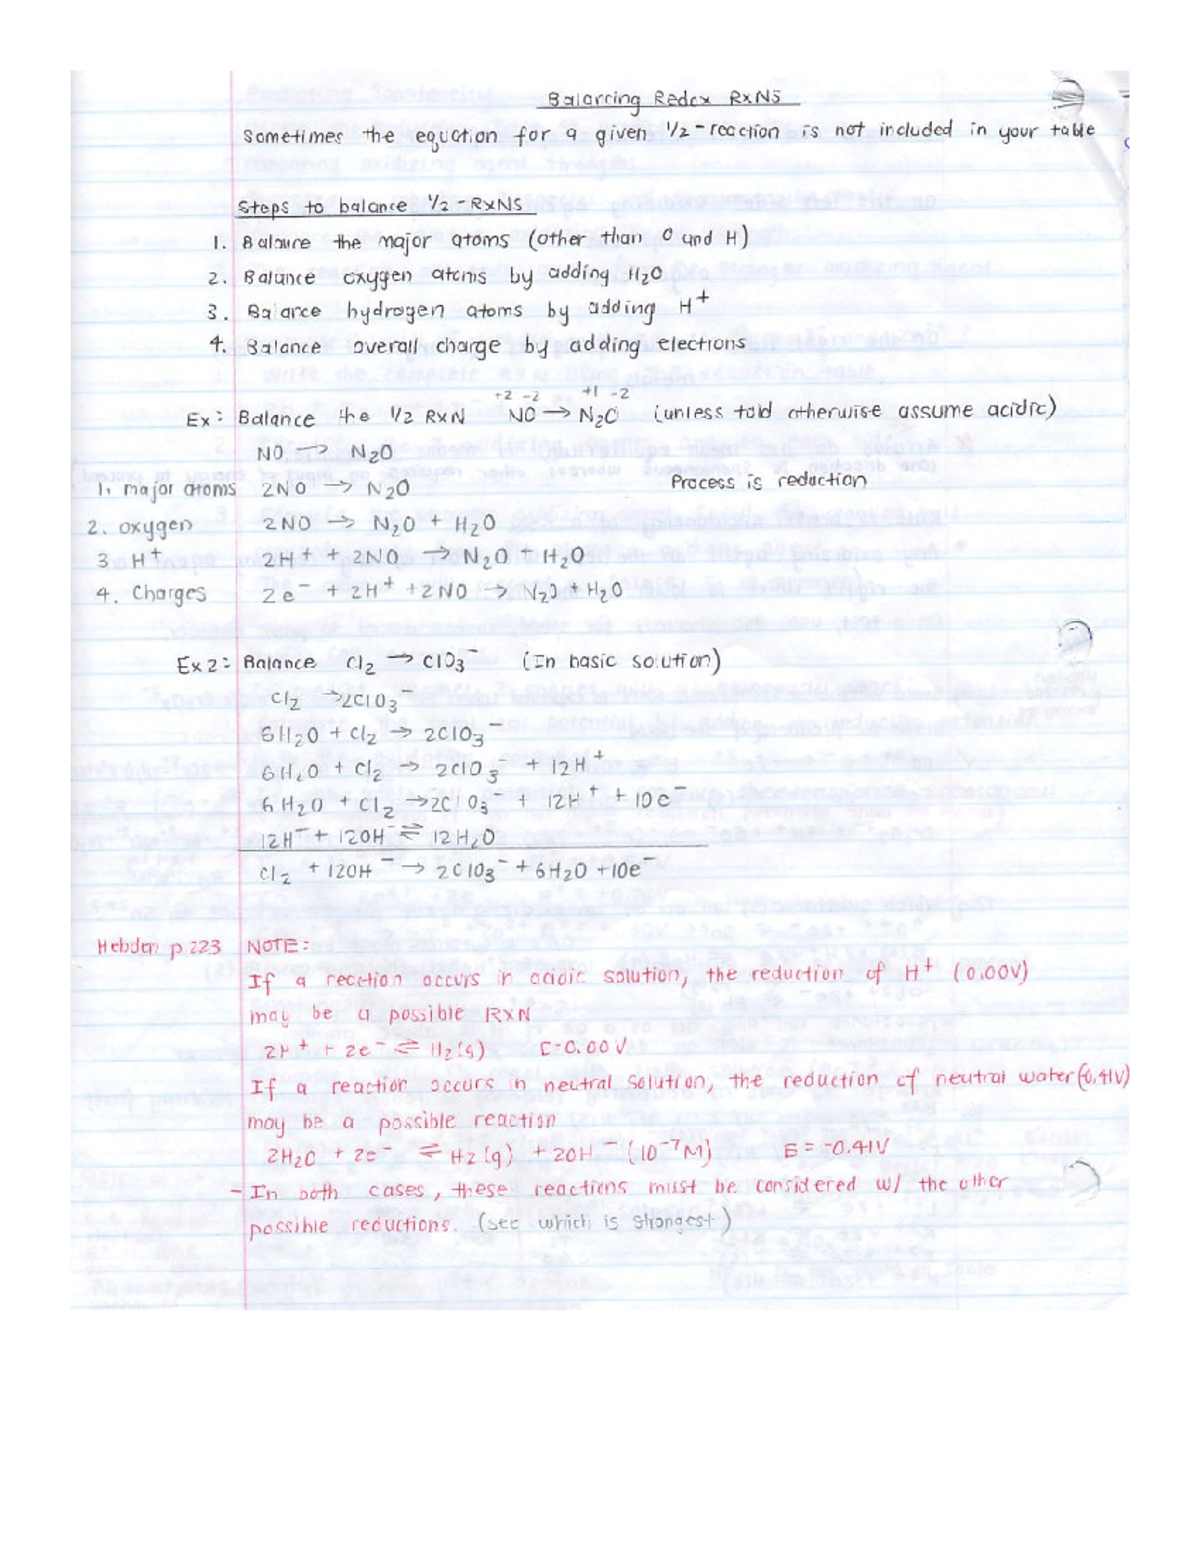 Balancing Redox RxNs
Sometimes the equation for a given 1/2-reaction is not included in your table
Steps to balance 1/2-RxNs
1. Balance the major atoms (other than O and H)
2. Balance oxygen atoms by adding H₂O
3. Balance hydrogen atoms by adding H⁺
4. Balance overall charge by adding electrons
+2 -2 +1 -2
Ex: Balance the 1/2 RxN NO → N₂O (unless told otherwise assume acidic)
NO → N₂O
1. major atoms 2NO → N₂O Process is reduction
2. oxygen 2NO → N₂O + H₂O
3 H⁺ 2H⁺ + 2NO → N₂O + H₂O
4. Charges 2e⁻ + 2H⁺ + 2NO → N₂O + H₂O
Ex2: Balance Cl₂ → ClO₃⁻ (In basic solution)
Cl₂ → 2ClO₃⁻
6H₂O + Cl₂ → 2ClO₃⁻
6H₂O + Cl₂ → 2ClO₃⁻ + 12H⁺
6H₂O + Cl₂ → 2ClO₃⁻ + 12H⁺ + 10e⁻
12H⁺ + 12OH⁻ ⇌ 12H₂O
Cl₂ + 12OH⁻ → 2ClO₃⁻ + 6H₂O + 10e⁻
Hebden p 223 NOTE:
If a reaction occurs in acidic solution, the reduction of H⁺ (0.00V)
may be a possible RxN
2H⁺ + 2e⁻ ⇌ H₂(g) E=0.00V
If a reaction occurs in neutral solution, the reduction of neutral water (-0.41V)
may be a possible reaction
2H₂O + 2e⁻ ⇌ H₂(g) + 2OH⁻ (10⁻⁷M) E = -0.41V
- In both cases, these reactions must be considered w/ the other
possible reductions. (see which is strongest)